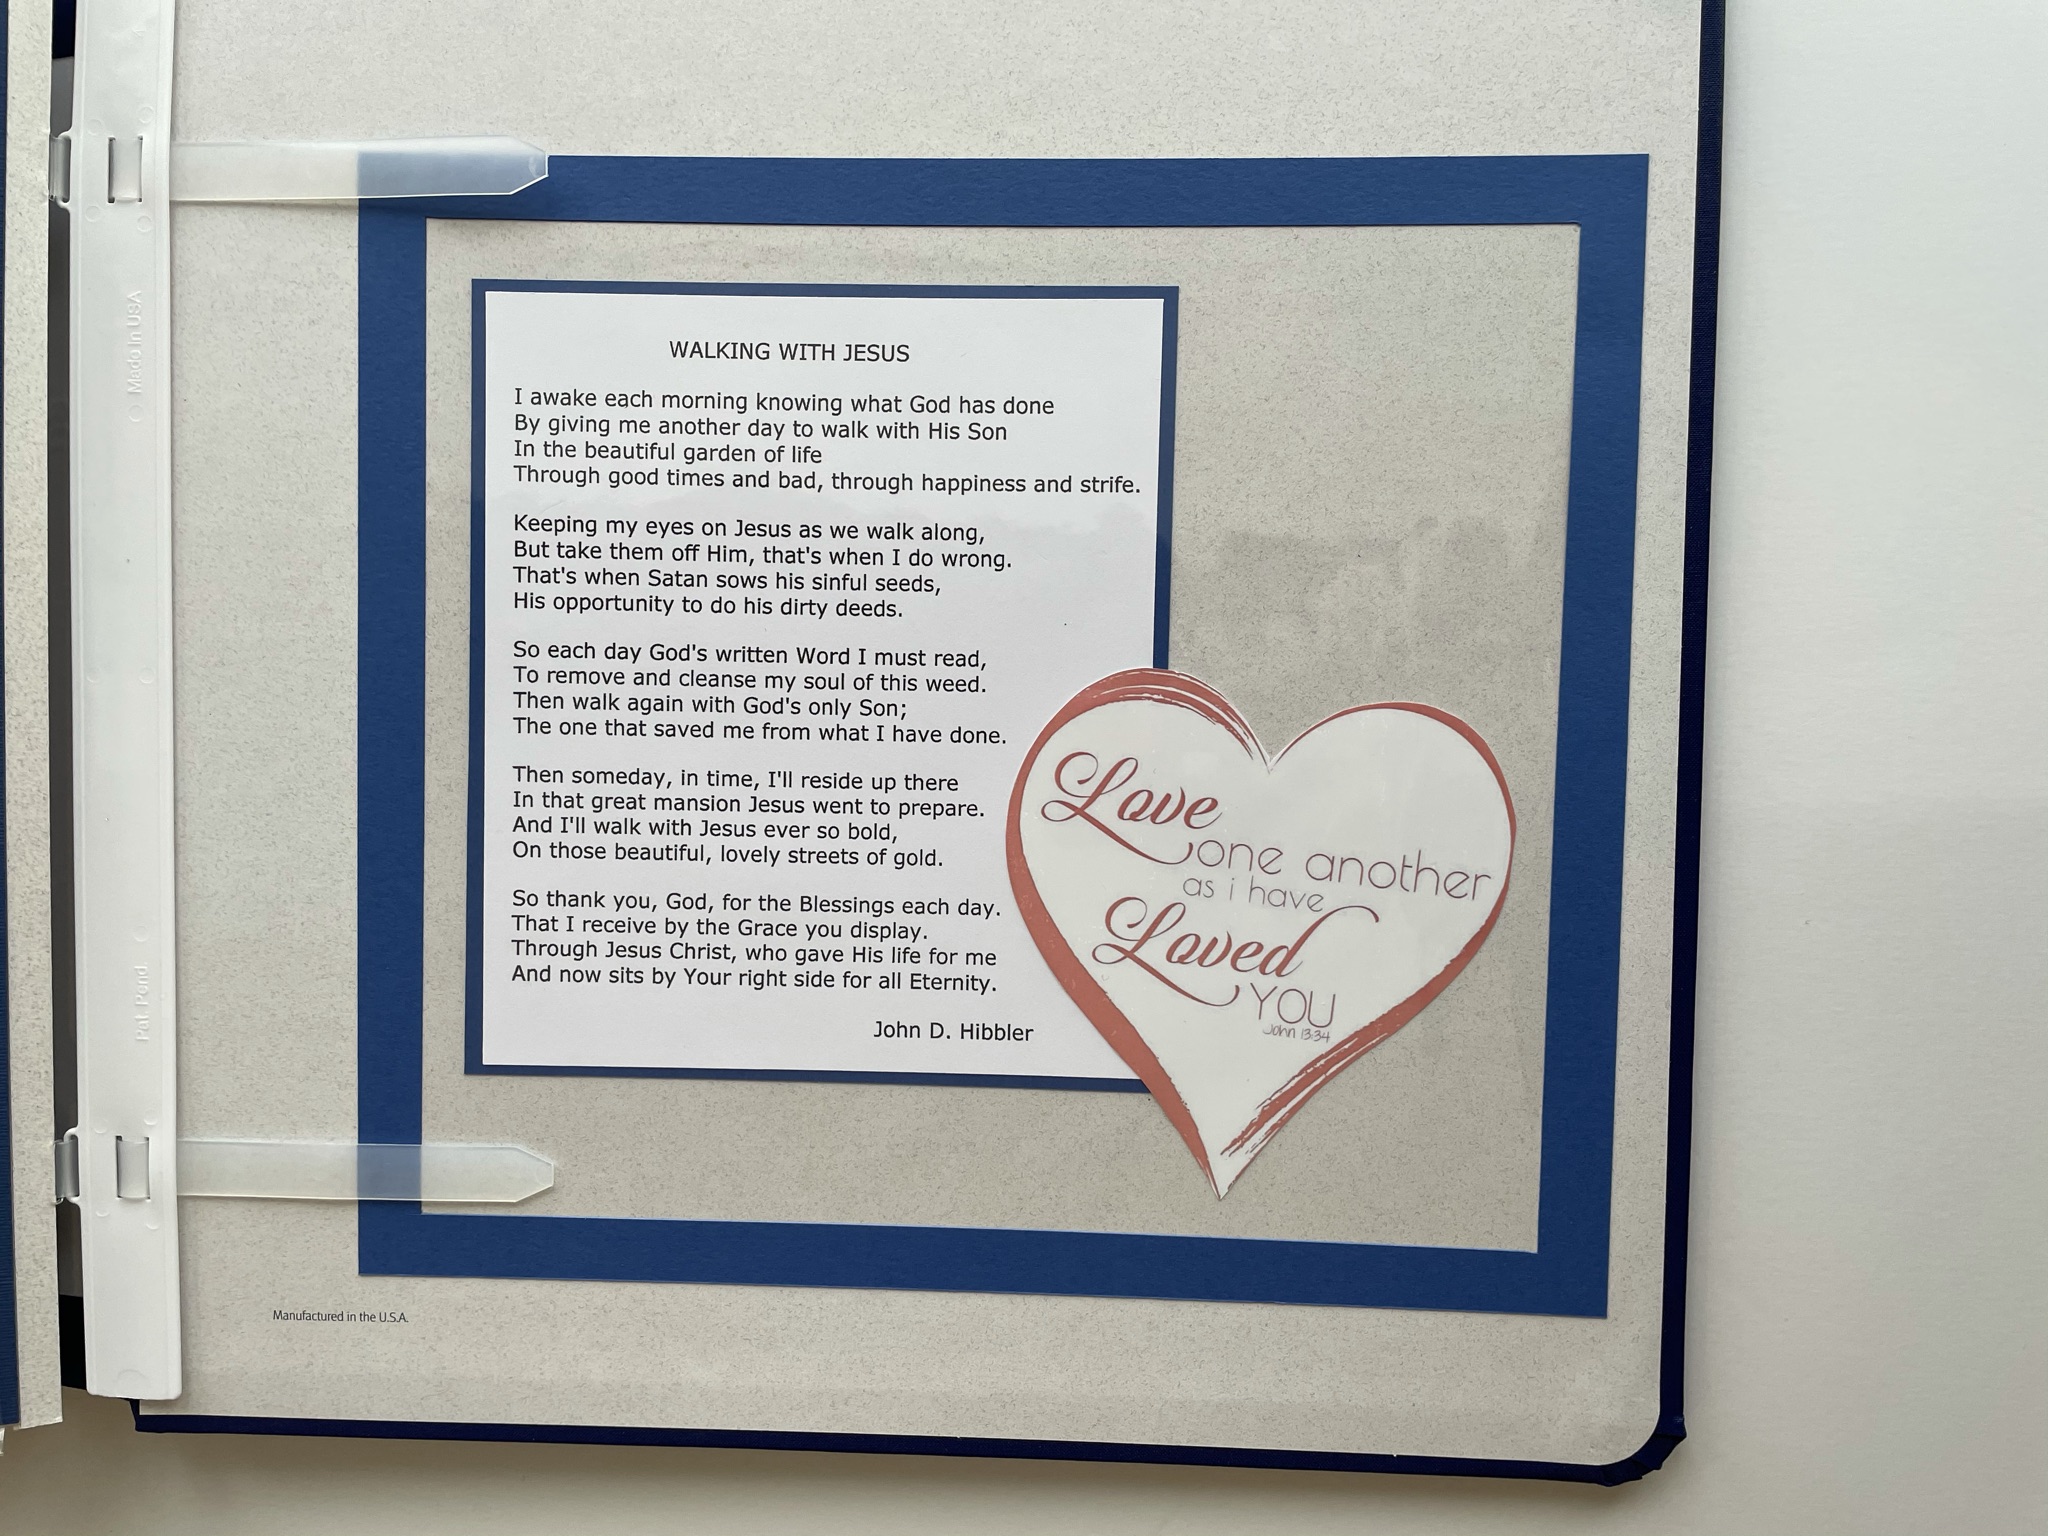 WALKING WITH JESUS
I awake each morning knowing what God has done
By giving me another day to walk with His Son
In the beautiful garden of life
Through good times and bad, through happiness and strife.
Keeping my eyes on Jesus as we walk along,
But take them off Him, that's when I do wrong.
That's when Satan sows his sinful seeds,
His opportunity to do his dirty deeds.
So each day God's written Word I must read,
To remove and cleanse my soul of this weed.
Then walk again with God's only Son;
The one that saved me from what I have done.
Then someday, in time, I'll reside up there
In that great mansion Jesus went to prepare.
And I'll walk with Jesus ever so bold,
On those beautiful, lovely streets of gold.
So thank you, God, for the Blessings each day.
That I receive by the Grace you display.
Through Jesus Christ, who gave His life for me
And now sits by Your right side for all Eternity.
John D. Hibbler
Love
one another
as i have
Loved
YOU
John 13:34
Made in USA
Pat. Pend
Manufactured in the U.S.A.